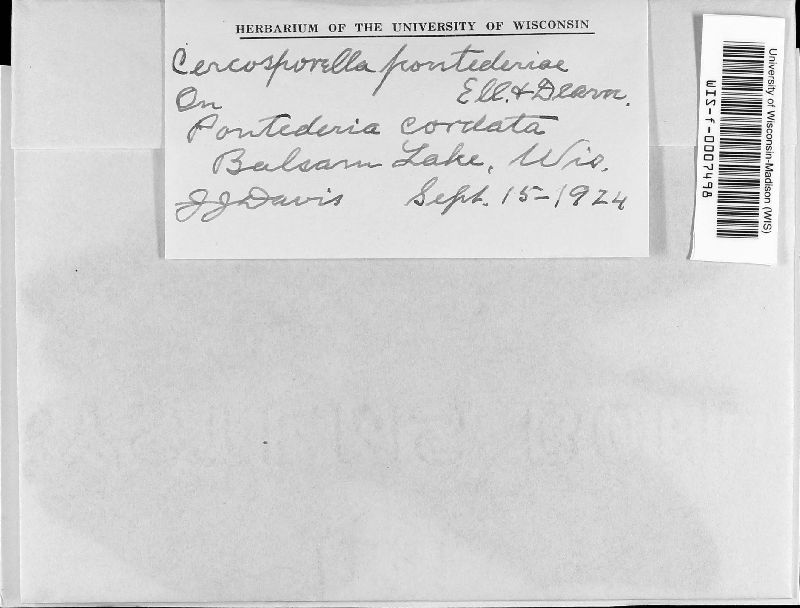 HERBARIUM OF THE UNIVERSITY OF WISCONSIN
Cercosporella pontederiae
Ell. & Dearn.
On
Pontederia cordata
Balsam Lake, Wis.
J J Davis Sept. 15-1924
University of Wisconsin-Madison (WIS)
WIS-f-0007498